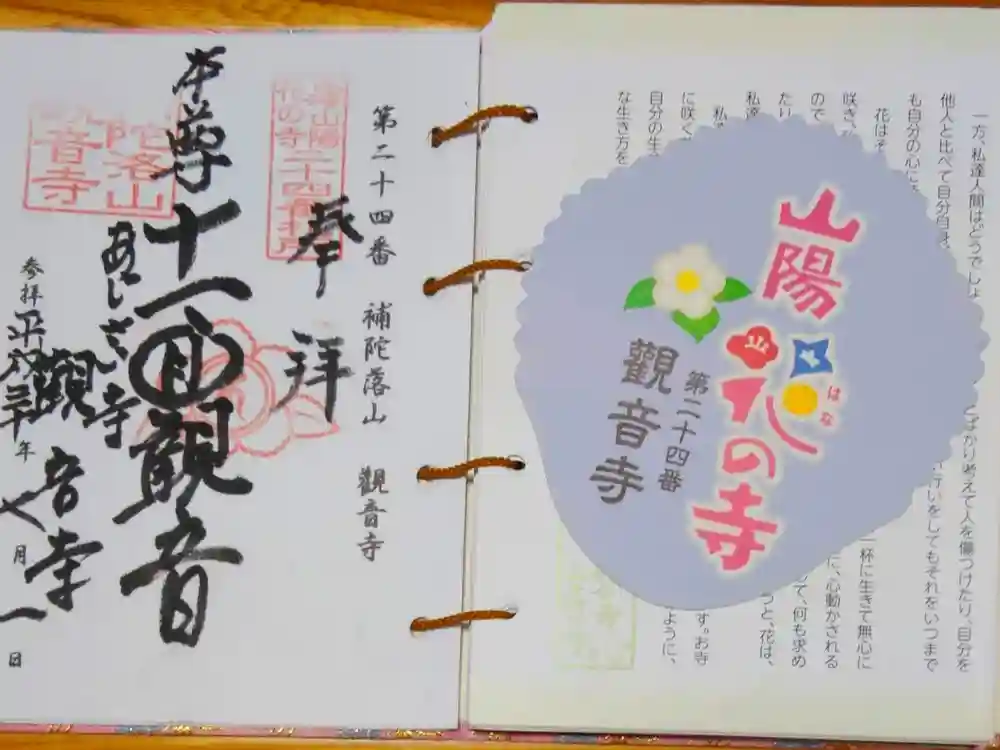 一方、私達人間はどうでしょ
他人と比べて自分自身
も自分の心に
とばかり考えて人を傷つけたり、自分を
行いをしてもそれをいつまで
花はそ
咲き、
一杯に生きて無心に
ので
に、心動かされる
たり
て、何も求め
私達
うと、花は、
私
に咲く
す。お寺
自分の生
ように、
な生き方を
山陽
花の寺
はな
山
第二十四番
觀音寺
第二十四番 補陀落山 觀音寺
奉拝
山陽
花の寺
二十四番札所
本尊十一面観音
陀洛山
音寺
あじさい寺
觀音寺
参拝平成三十年七月一日